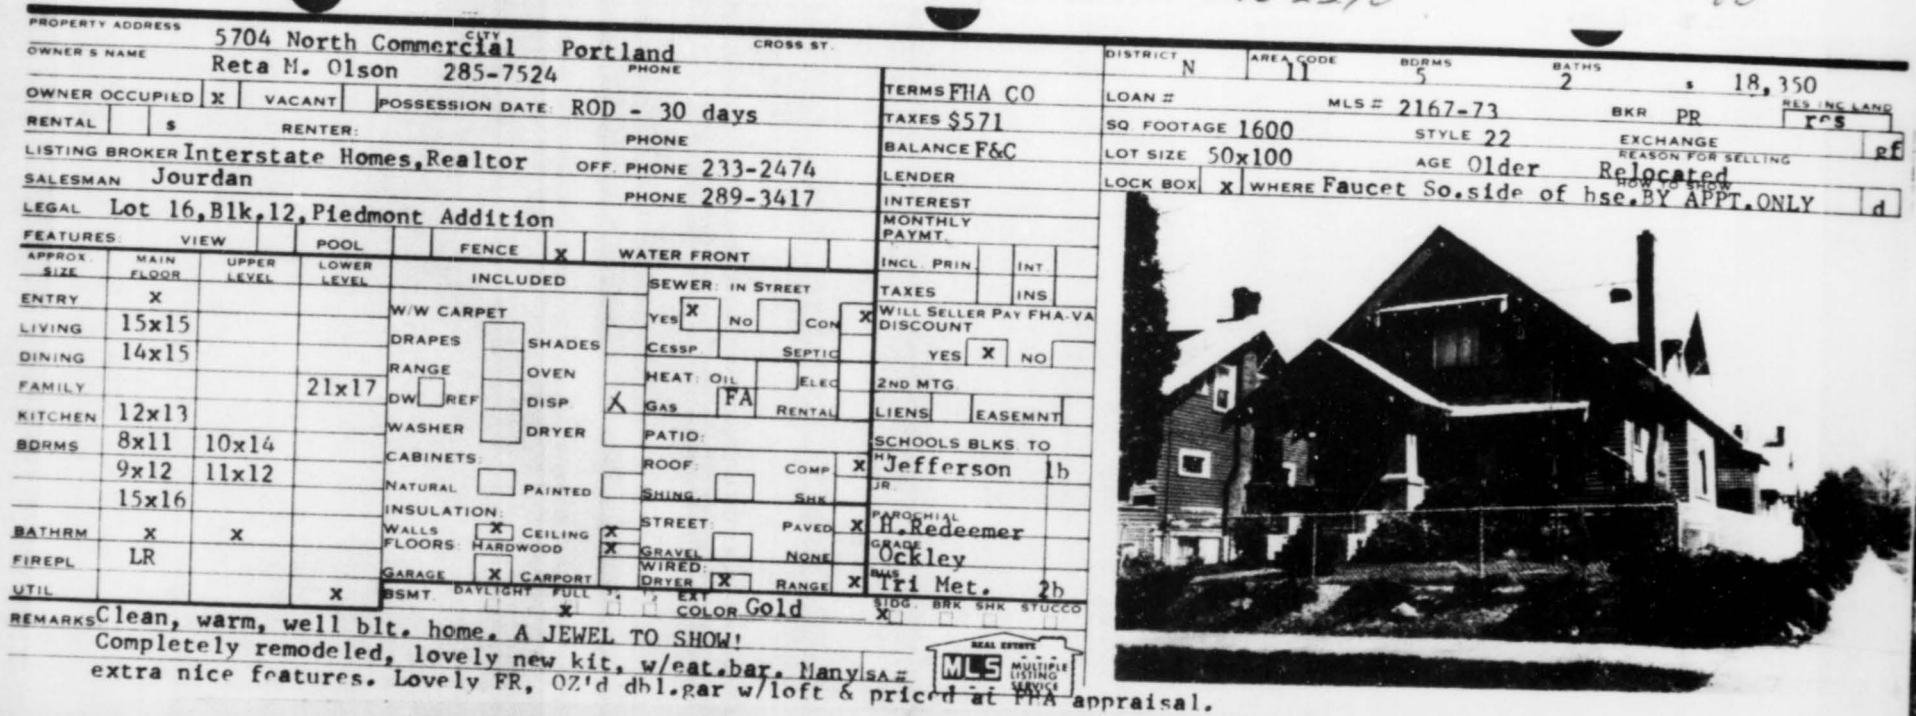 PROPERTY ADDRESS 5704 North Commercial CITY Portland CROSS ST.
OWNER'S NAME Reta M. Olson 285-7524 PHONE
OWNER OCCUPIED X VACANT POSSESSION DATE: ROD - 30 days
RENTAL $ RENTER: PHONE
LISTING BROKER Interstate Homes,Realtor OFF. PHONE 233-2474
SALESMAN Jourdan PHONE 289-3417
LEGAL Lot 16,Blk.12,Piedmont Addition
FEATURES: VIEW POOL FENCE X WATER FRONT
APPROX. SIZE MAIN FLOOR UPPER LEVEL LOWER LEVEL
ENTRY X
LIVING 15x15
DINING 14x15
FAMILY 21x17
KITCHEN 12x13
BDRMS 8x11 10x14
9x12 11x12
15x16
BATHRM X X
FIREPL LR
UTIL X
INCLUDED
W/W CARPET
DRAPES SHADES
RANGE OVEN
DW REF DISP. X
WASHER DRYER
CABINETS:
NATURAL PAINTED
INSULATION:
WALLS X CEILING X
FLOORS: HARDWOOD X
GARAGE X CARPORT
BSMT. DAYLIGHT FULL X
SEWER: IN STREET
YES X NO CON X
CESSP. SEPTIC
HEAT: OIL ELEC
GAS FA RENTAL
PATIO:
ROOF: COMP X
SHING. SHK
STREET: PAVED X
GRAVEL NONE
WIRED:
DRYER X RANGE X
EXT COLOR Gold
TERMS FHA CO
TAXES $571
BALANCE F&C
LENDER
INTEREST
MONTHLY PAYMT.
INCL. PRIN. INT.
TAXES INS
WILL SELLER PAY FHA-VA DISCOUNT
YES X NO
2ND MTG.
LIENS EASEMNT
SCHOOLS BLKS. TO
HI Jefferson 1b
JR.
PAROCHIAL H.Redeemer
GRADE Ockley
BUS Tri Met. 2b
SIDG. X BRK SHK STUCCO
DISTRICT N AREA CODE 11 BDRMS 5 BATHS 2 $ 18,350
LOAN # MLS # 2167-73 BKR PR RES INC LAND res
SQ FOOTAGE 1600 STYLE 22 EXCHANGE
LOT SIZE 50x100 AGE Older REASON FOR SELLING Relocated
LOCK BOX X WHERE Faucet So.side of hse. HOW TO SHOW BY APPT.ONLY d
REMARKS Clean, warm, well blt. home. A JEWEL TO SHOW!
Completely remodeled, lovely new kit, w/eat.bar. Many SA #
extra nice features. Lovely FR, OZ'd dbl.gar w/loft & priced at FHA appraisal.
REAL ESTATE
MLS MULTIPLE LISTING SERVICE